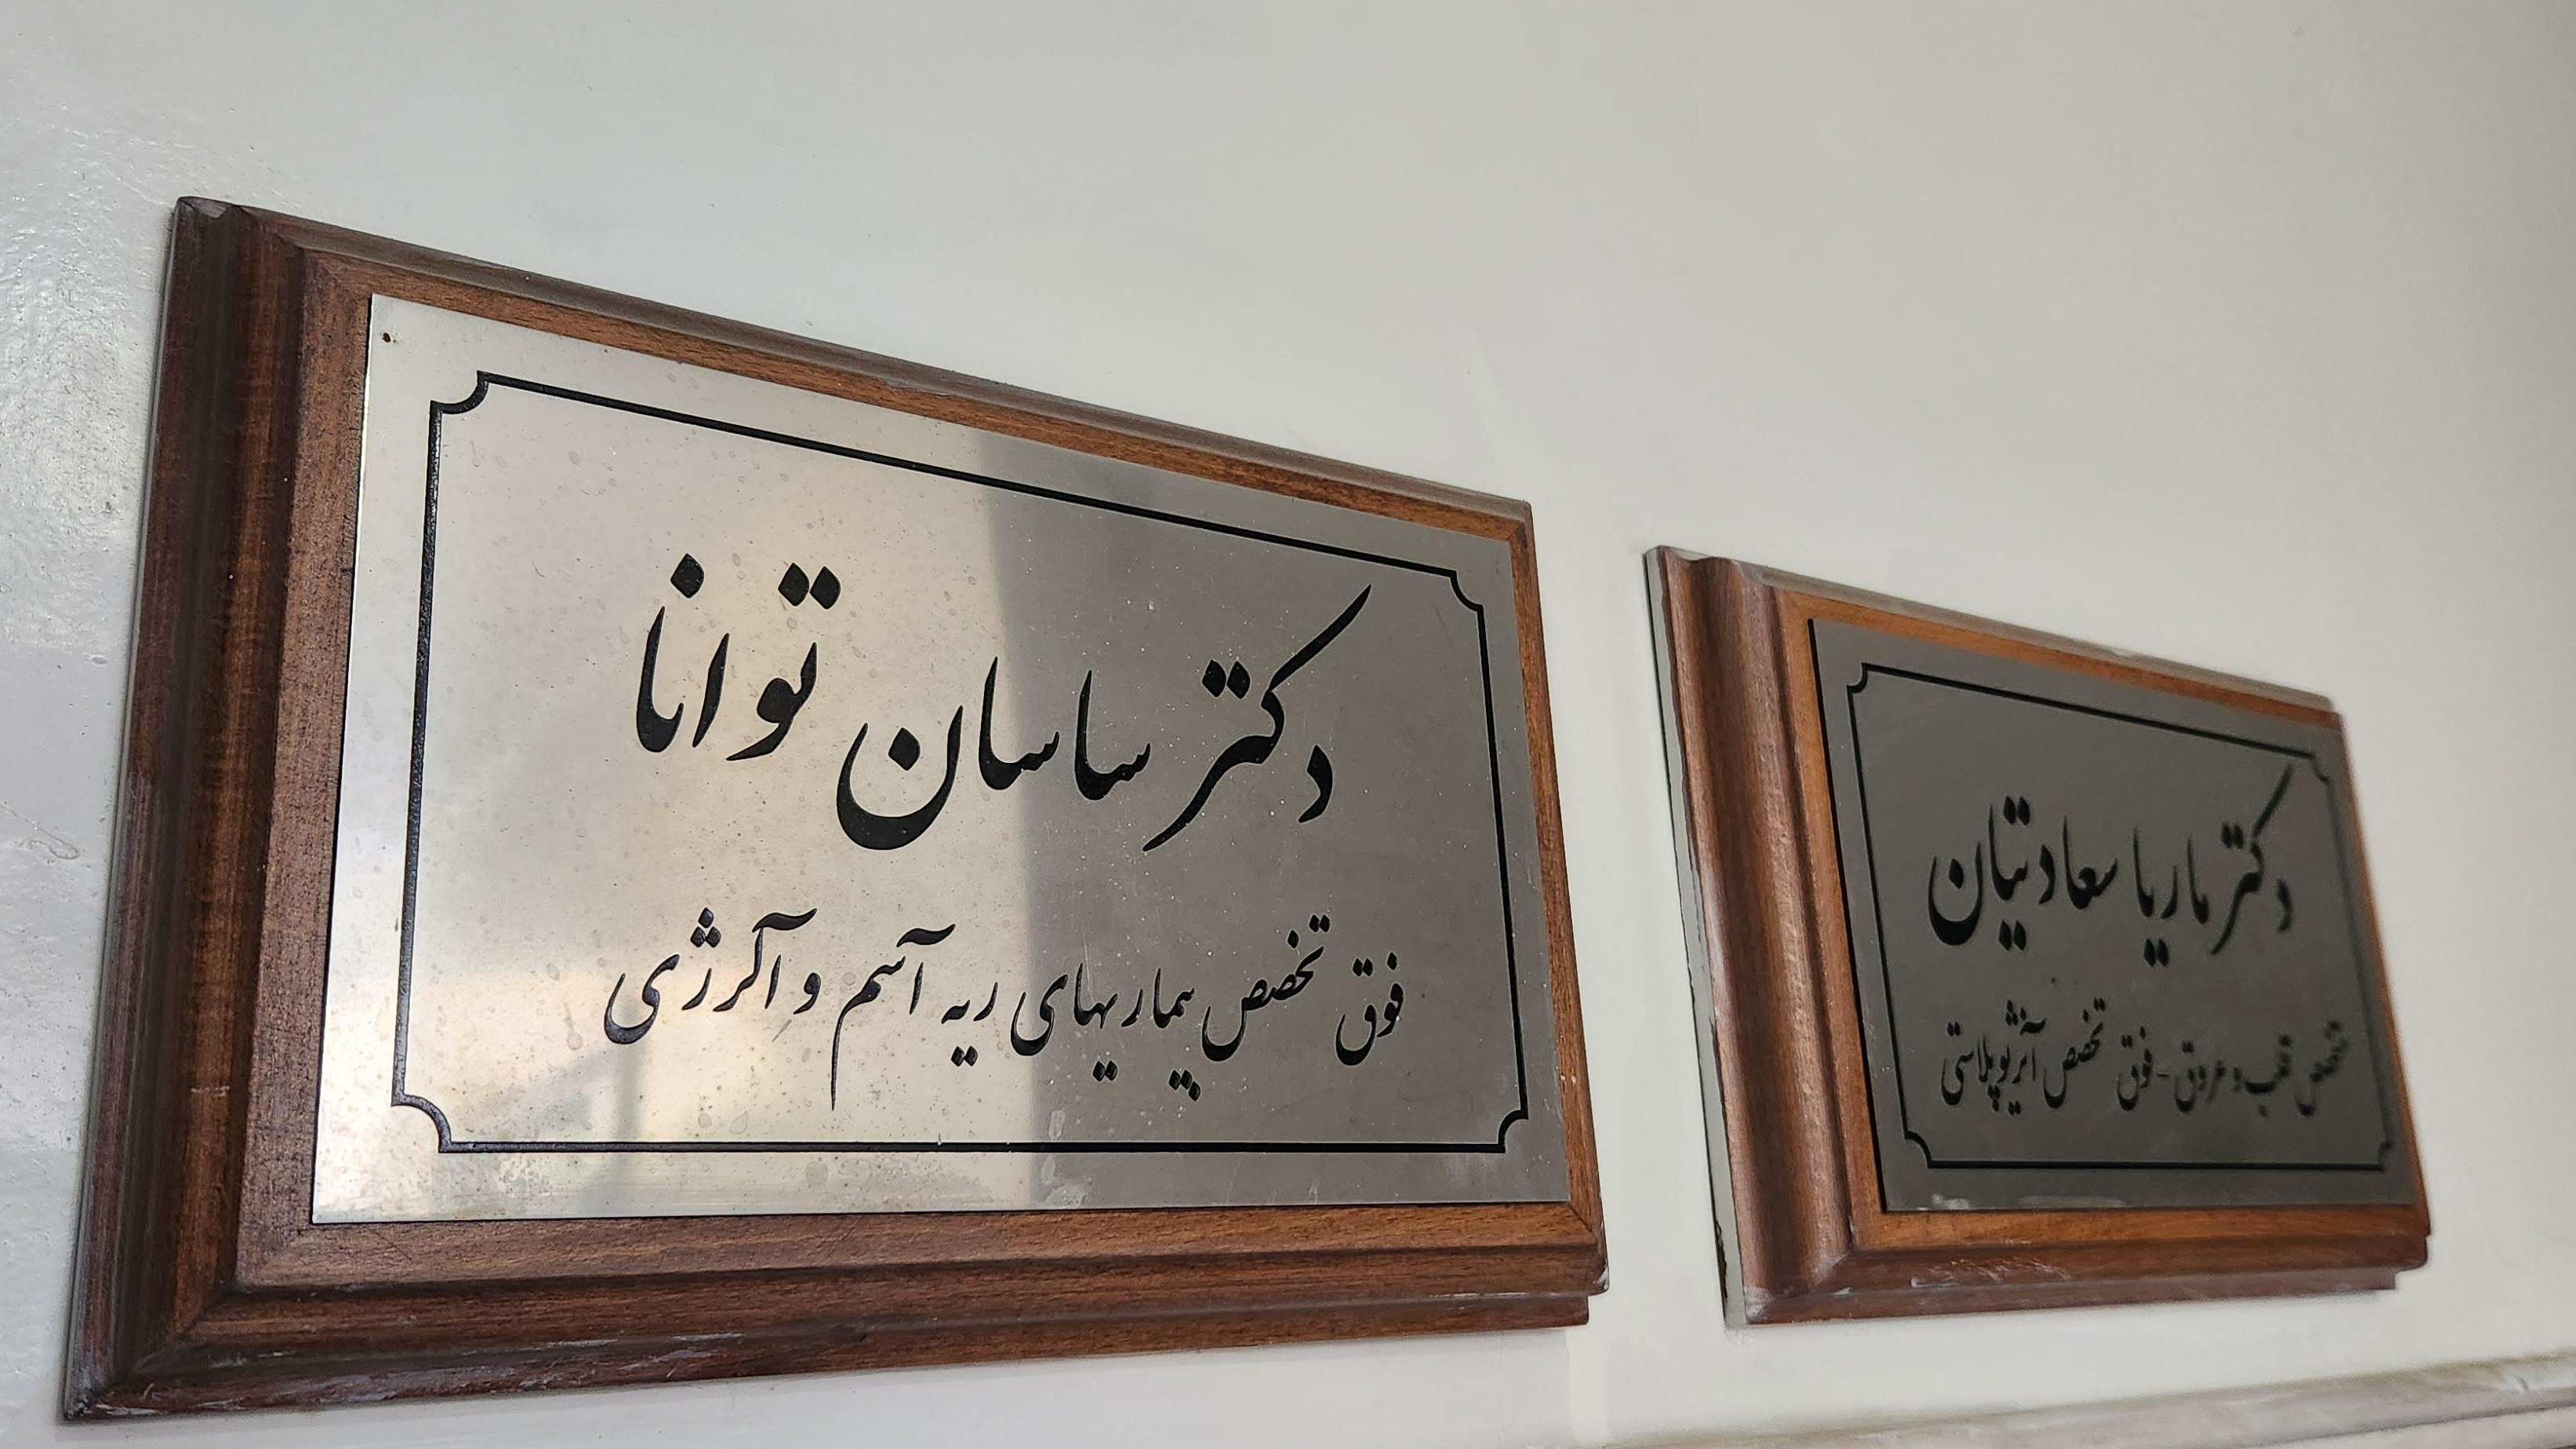 دکتر ساسان توانا
فوق تخصص بیماریهای ریه آسم و آلرژی
دکتر ماریا سعادتیان
تخصص قلب و عروق - فوق تخصص آنژیوپلاستی